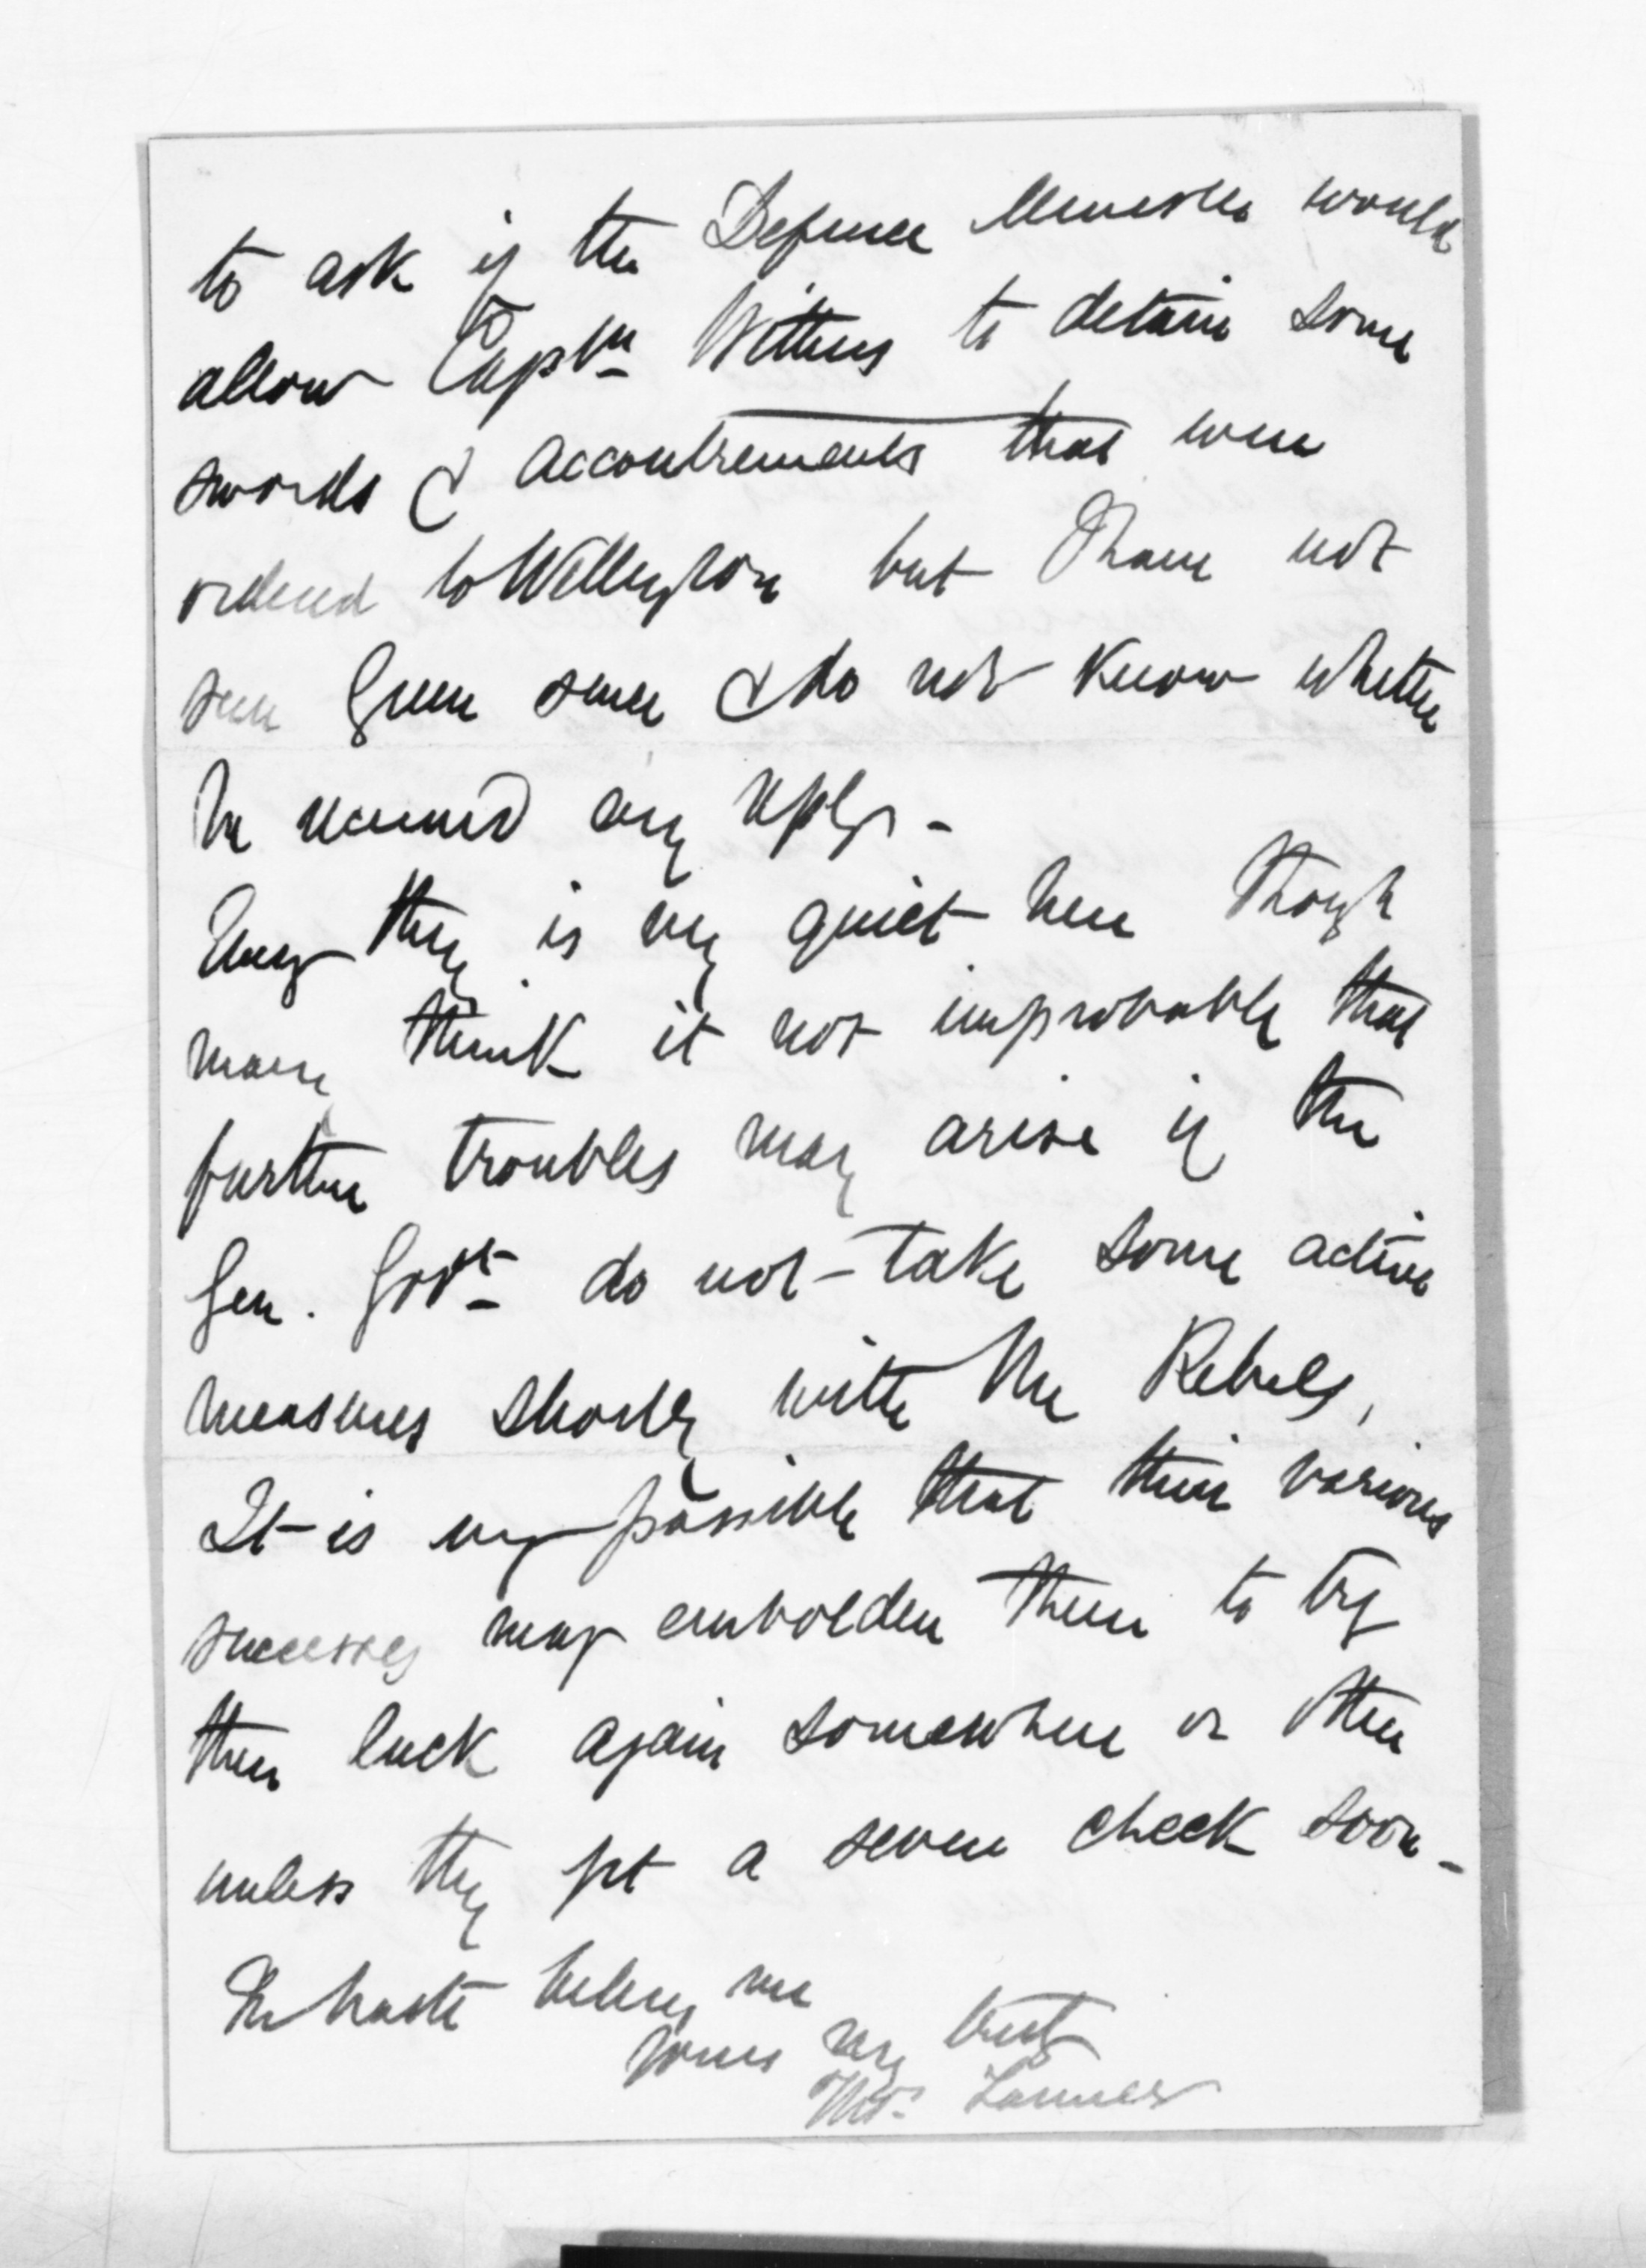 to ask if the Defence Minister would
allow Captn Withers to detain some
swords & accoutrements that were
ordered to Wellington but I have not
seen Green since & do not know whether
he received any reply -
Every thing is very quiet here though
many think it not improbable that
further troubles may arise if the
Gen. Govt do not take some active
measures shortly with the Rebels,
It is very possible that their various
successes may embolden them to try
their luck again somewhere or other
unless they get a severe check soon -
In haste believe me
yours very truly
Thos. Tanner